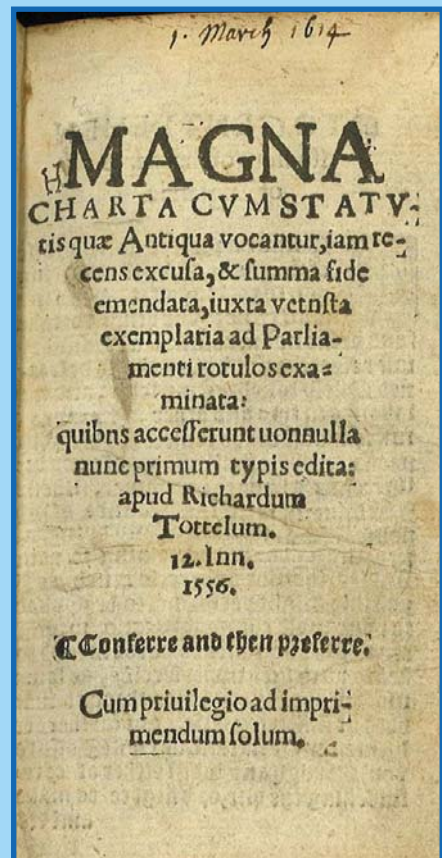 1. March 1614
MAGNA
CHARTA CVM STATV-
tis quæ Antiqua vocantur, iam re-
cens excuſa, & ſumma fide
emendata, iuxta vetnſta
exemplaria ad Parlia-
menti rotulos exa-
minata:
quibns acceſſerunt uonnulla
nunc primum typis edita:
apud Richardum
Tottelum.
12. Inn.
1556.
¶ Conferre and then preferre.
Cum priuilegio ad impri-
mendum ſolum.